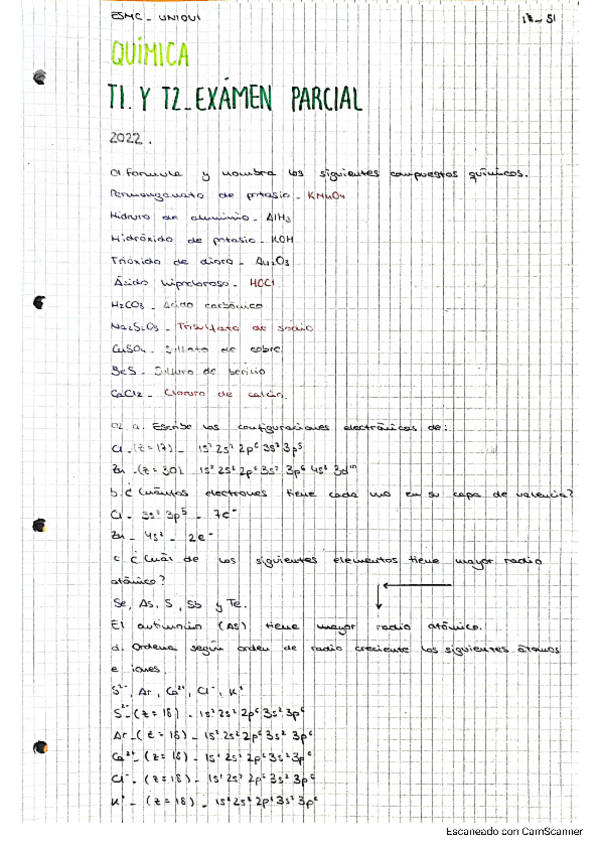 ESMC_UNIOVI
QUÍMICA
T1. Y T2_EXÁMEN PARCIAL
2022.
01. Formula y nombra los siguientes compuestos químicos.
Permanganato de potasio. KMnO4
Hidruro de aluminio. AlH3
Hidróxido de potasio. KOH
Trióxido de dioro. Au2O3
Ácido hipocloroso. HOCl
H2CO3. Ácido carbónico
de sodio
CuSO4. Sulfato de cobre
BeS. Sulfuro de berilio
CaCl2. Cloruro de calcio.
02. a. Escribe las configuraciones electrónicas de:
Cl.(z=17)_ 1s² 2s² 2p⁶ 3s² 3p⁵
Zn.(z=30) 1s² 2s² 2p⁶ 3s² 3p⁶ 4s² 3d¹⁰
b. ¿Cuántos electrones tiene cada uno en su capa de valencia?
Cl. 3p⁵ _ 7e⁻
Zn_ 4s² _ 2e⁻
c. ¿Cuál de los siguientes elementos tiene mayor radio
atómico?
Se, As, S, Sb y Te.
El antimonio (AS) tiene mayor radio atómico.
d. Ordena según orden de radio creciente los siguientes átomos
e iones.
S²⁻, Ar, Ca²⁺, Cl⁻, K⁺
S²⁻_(z=18)_ 1s² 2s² 2p⁶ 3s² 3p⁶
Ar_(z=18)_ 1s² 2s² 2p⁶ 3s² 3p⁶
Ca²⁺_(z=18)_ 1s² 2s² 2p⁶ 3s² 3p⁶
Cl⁻_(z=18)_ 1s² 2s² 2p⁶ 3s² 3p⁶
K⁺_(z=18)_ 1s² 2s² 2p⁶ 3s² 3p⁶
Escaneado con CamScanner